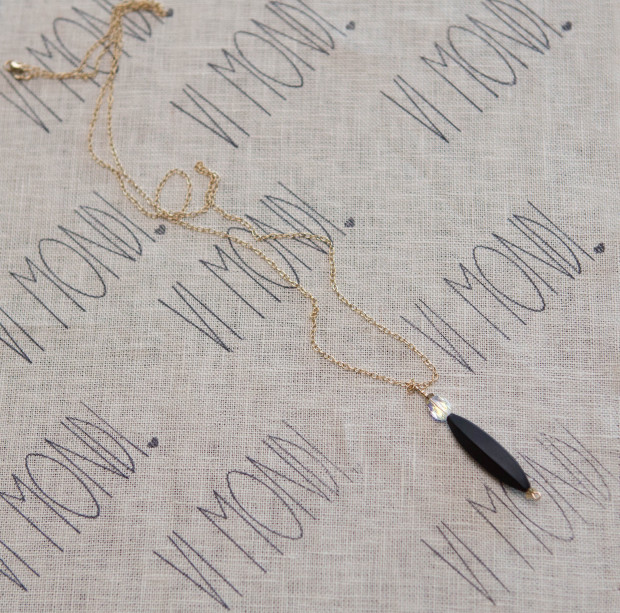 VI MONDI
VI MONDI
VI MONDI
VI MONDI
VI MONDI
VI MONDI
VI MONDI
VI MONDI
VI MONDI